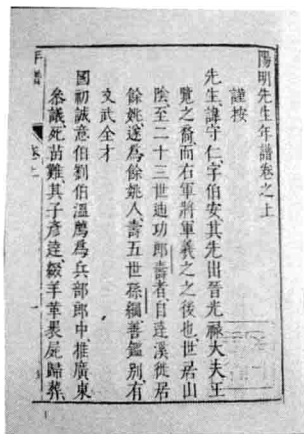 陽明先生年譜卷之上
謹按
先生諱守仁字伯安其先出晉光祿大夫王
覽之裔而右軍將軍羲之之後也世居山
陰至二十三世迪功郎壽者自達溪徙居
餘姚遂爲餘姚人壽五世孫綱善鑑別有
文武全才
國初誠意伯劉伯溫薦爲兵部郎中推廣東
叅議死苗難其子彥達綴羊革裹屍歸葬
年譜
卷上